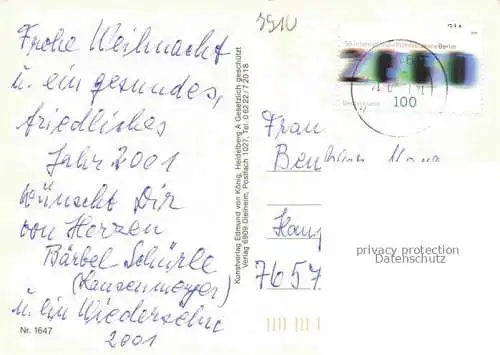 Frohe Weihnacht
u. ein gesundes,
friedliches
Jahr 2001
wünscht Dir
von Herzen
Bärbel Schürle
(Kansenmeyer)
u. ein Wiedersehn
2001
Nr. 1647
Kunstverlag Edmund von König, Heidelberg A Gesetzlich geschützt
Verlag 6909 Dielheim, Postfach 1027, Tel. 0 62 22 / 7 20 18
3910
Deutschland
100
Frau
7657
privacy protection
Datenschutz